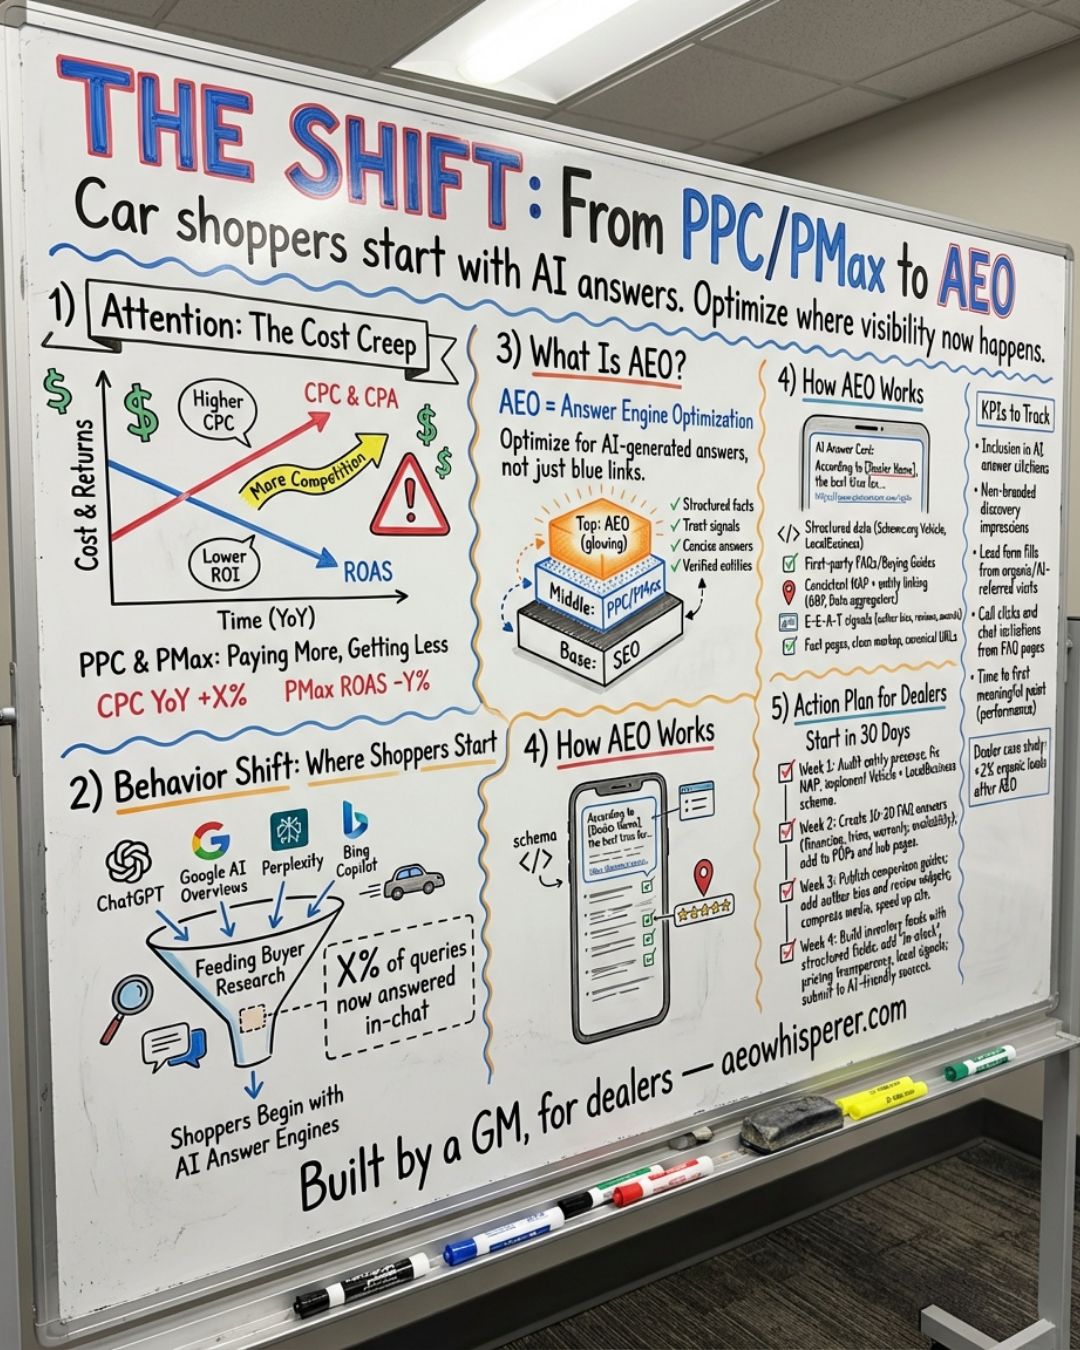 THE SHIFT: From PPC/PMax to AEO
Car shoppers start with AI answers. Optimize where visibility now happens.
1) Attention: The Cost Creep
$
$
$
$
Higher
CPC
CPC & CPA
More Competition
!
Cost & Returns
Lower
ROI
ROAS
Time (YoY)
PPC & PMax: Paying More, Getting Less
CPC YoY +X%
PMax ROAS -Y%
2) Behavior Shift: Where Shoppers Start
ChatGPT
Google AI
Overviews
Perplexity
Bing
Copilot
Feeding Buyer
Research
X% of queries
now answered
in-chat
Shoppers Begin with
AI Answer Engines
3) What Is AEO?
AEO = Answer Engine Optimization
Optimize for AI-generated answers,
not just blue links.
Top: AEO
(glowing)
Middle: PPC/PMax
Base: SEO
✓ Structured facts
✓ signals
✓ Concise answers
✓ Verified
4) How AEO Works
schema
</>
According to
the best
4) How AEO Works
AI Answer
According to
the best
</> Structured data (Schema.org Vehicle,
LocalBusiness)
First-party FAQs/Buying Guides
+ entity linking
(GBP, Data
E-E-A-T signals reviews,
Fact pages, clean canonical URLs
5) Action Plan for Dealers
Start in 30 Days
Week 1: Audit
NAP, implement Vehicle + LocalBusiness
Week 2: Create 10-20 FAQ
(financing, warranty,
add to and hub pages.
Week 3: Publish comparison guides;
add author bios and review widgets;
compress media, speed up
Week 4: Build inventory feeds with
structured fields, add
pricing transparency, local signals;
submit to AI-friendly
KPIs to Track
• Inclusion in AI
answer
• Non-branded
discovery
• Lead form fills
from
referred
• Call clicks and
chat
from FAQ pages
• Time to first
meaningful
(performance)
Dealer case study:
organic leads
after AEO
Built by a GM, for dealers — aeowhisperer.com